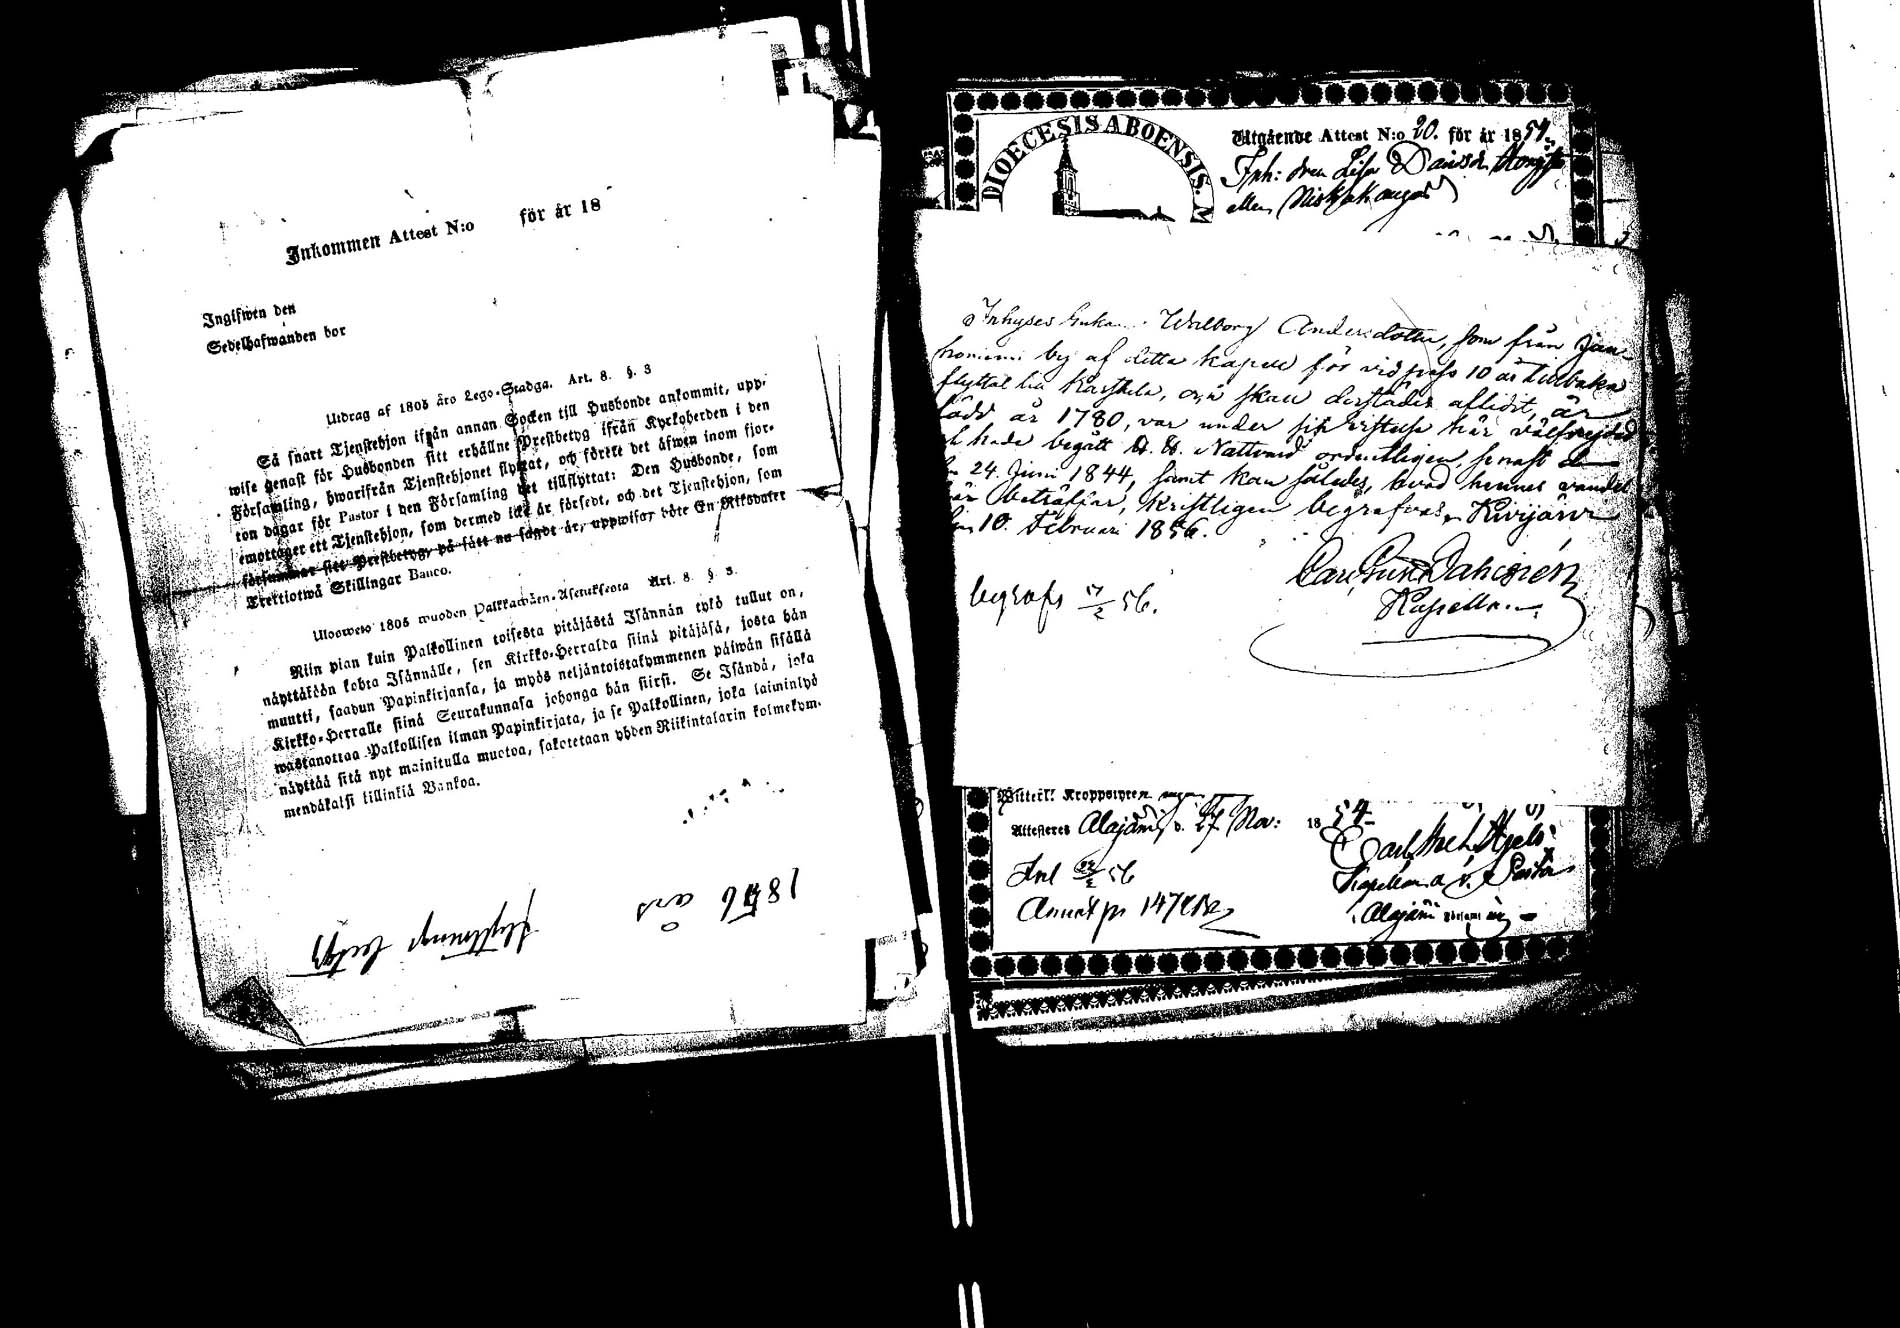 Inkommen Attest N:o för år 18
Ingifwen den
Sedelhafwanden bor
Utdrag af 1805 års Lego-Stadga. Art. 8. §. 3
Så snart Tjenstehjon ifrån annan Socken till Husbonde ankommit, upp-
wise genast för Husbonden sitt erhållne Prestbetyg ifrån Kyrkoherden i den
Församling, hwarifrån Tjenstehjonet flyttat, och förete det äfwen inom fjor-
ton dagar för Pastor i den Församling det tillflyttat: Den Husbonde, som
emottager ett Tjenstehjon, som dermed icke är försedt, och det Tjenstehjon, som
försummar sitt Prestbetyg, på sätt nu sagdt är, uppwisa, böte En Riksdaler
Trettiotwå Skillingar Banco.
Ulosweto 1805 wuoden Palkkawäen-Asetuksesta Art. 8. §. 3.
Niin pian kuin Palkollinen toisesta pitäjästä Isännän tykö tullut on,
näyttäköön kohta Isännälle, sen Kirkko-Herralda siinä pitäjäsä, josta hän
muutti, saadun Papinkirjansa, ja myös neljäntoistakymmenen päiwän sisällä
Kirkko-Herralle siinä Seurakunnasa johonga hän siirsi. Se Isändä, joka
wastanottaa Palkollisen ilman Papinkirjata, ja se Palkollinen, joka laiminlyö
näyttää sitä nyt mainitulla muotoa, sakotetaan yhden Riikintalarin kolmekym-
mendäkaksi killinkiä Bankoa.
1856 års
flyttnings betyg
DIOECESIS ABOENSIS. M
Utgående Attest N:o 20. för år 1854.
Inh: dren Lisa Davidsdr
eller Niskakangas
Inhyses Enkan Walborg Andersdotter, som från Jan-
honiemi by af detta kapell för vid pass 10 år tillbaka
flyttat till Karstula, och skall derstädes aflidit, är
född år 1780, var under sin vistelse här välfrejdad
och hade begått H. H. Nattvard ordentligen, senast den
24 Juni 1844, samt kan således, hvad hennes vandel
här beträffar, kristligen begrafvas, Kivijärvi
den 10. Februari 1856.
Carl Gust. Dahlström
Kapellan.
begrafs 17/2 56.
Witterl: Kroppslyten
Attesteres Alajärvi d. 27 Nov: 1854
Carl Axel
Kapellan o. v. Pastor
i Alajärvi Församl
Inl 22/2 56
Annot p. 147